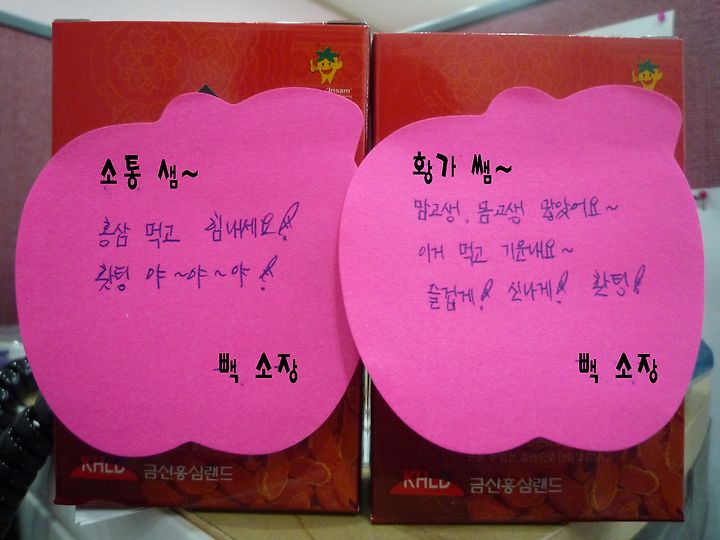 Insam
소통 샘~
홍삼 먹고 힘내세요!
홧팅 야~야~야!
빽 소장
KHLD 금산홍삼랜드
황가 쌤~
맘고생, 몸고생 많았어요~
이거 먹고 기운내요~
즐겁게! 신나게! 홧팅!
빽 소장
KHLD 금산홍삼랜드